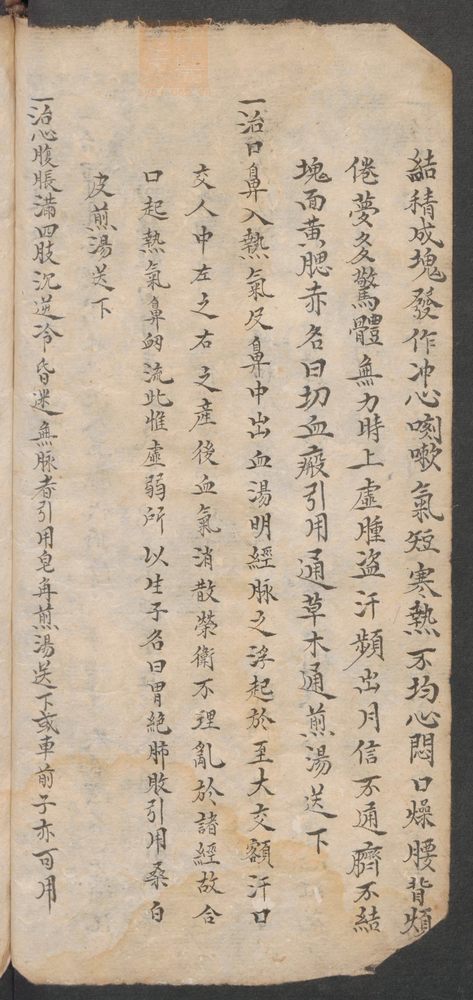 結積成塊發作冲心咳嗽氣短寒熱不均心悶口燥腰背煩
倦夢多驚體無力時上虛腫盜汗頻出月信不通臍不結
塊面黃腮赤名曰切血瘢引用通草木通煎湯送下
一治口鼻入熱氣及鼻中出血湯明經脉之浮起於至大交額汗口
交人中左之右之產後血氣消散榮衛不理亂於諸經故合
口起熱氣鼻衂流此惟虛弱所以生子名曰胃絶肺敗引用桑白
皮煎湯送下
一治心腹脹滿四肢沉逆冷昏迷無脉者引用皂角煎湯送下或車前子亦可用